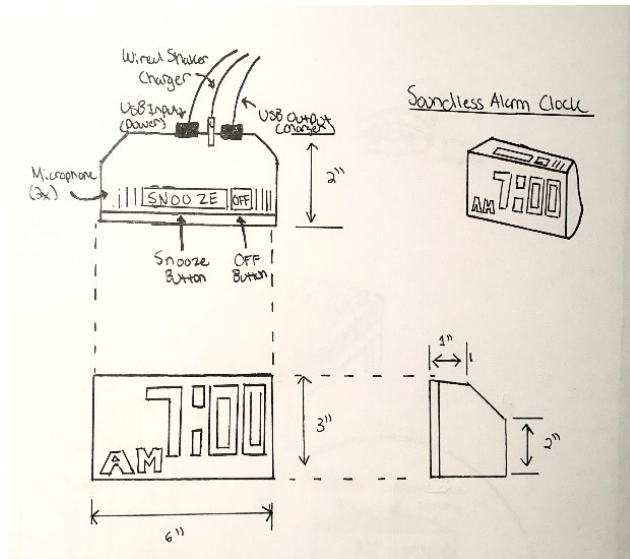 Wired Shaker
Charger
USB Input
(Power)
USB Output
(Charger)
Soundless Alarm Clock
Microphone
(2x)
SNOOZE
OFF
2"
Snooze
Button
OFF
Button
7:00
AM
1"
7:00
AM
3"
2"
6"